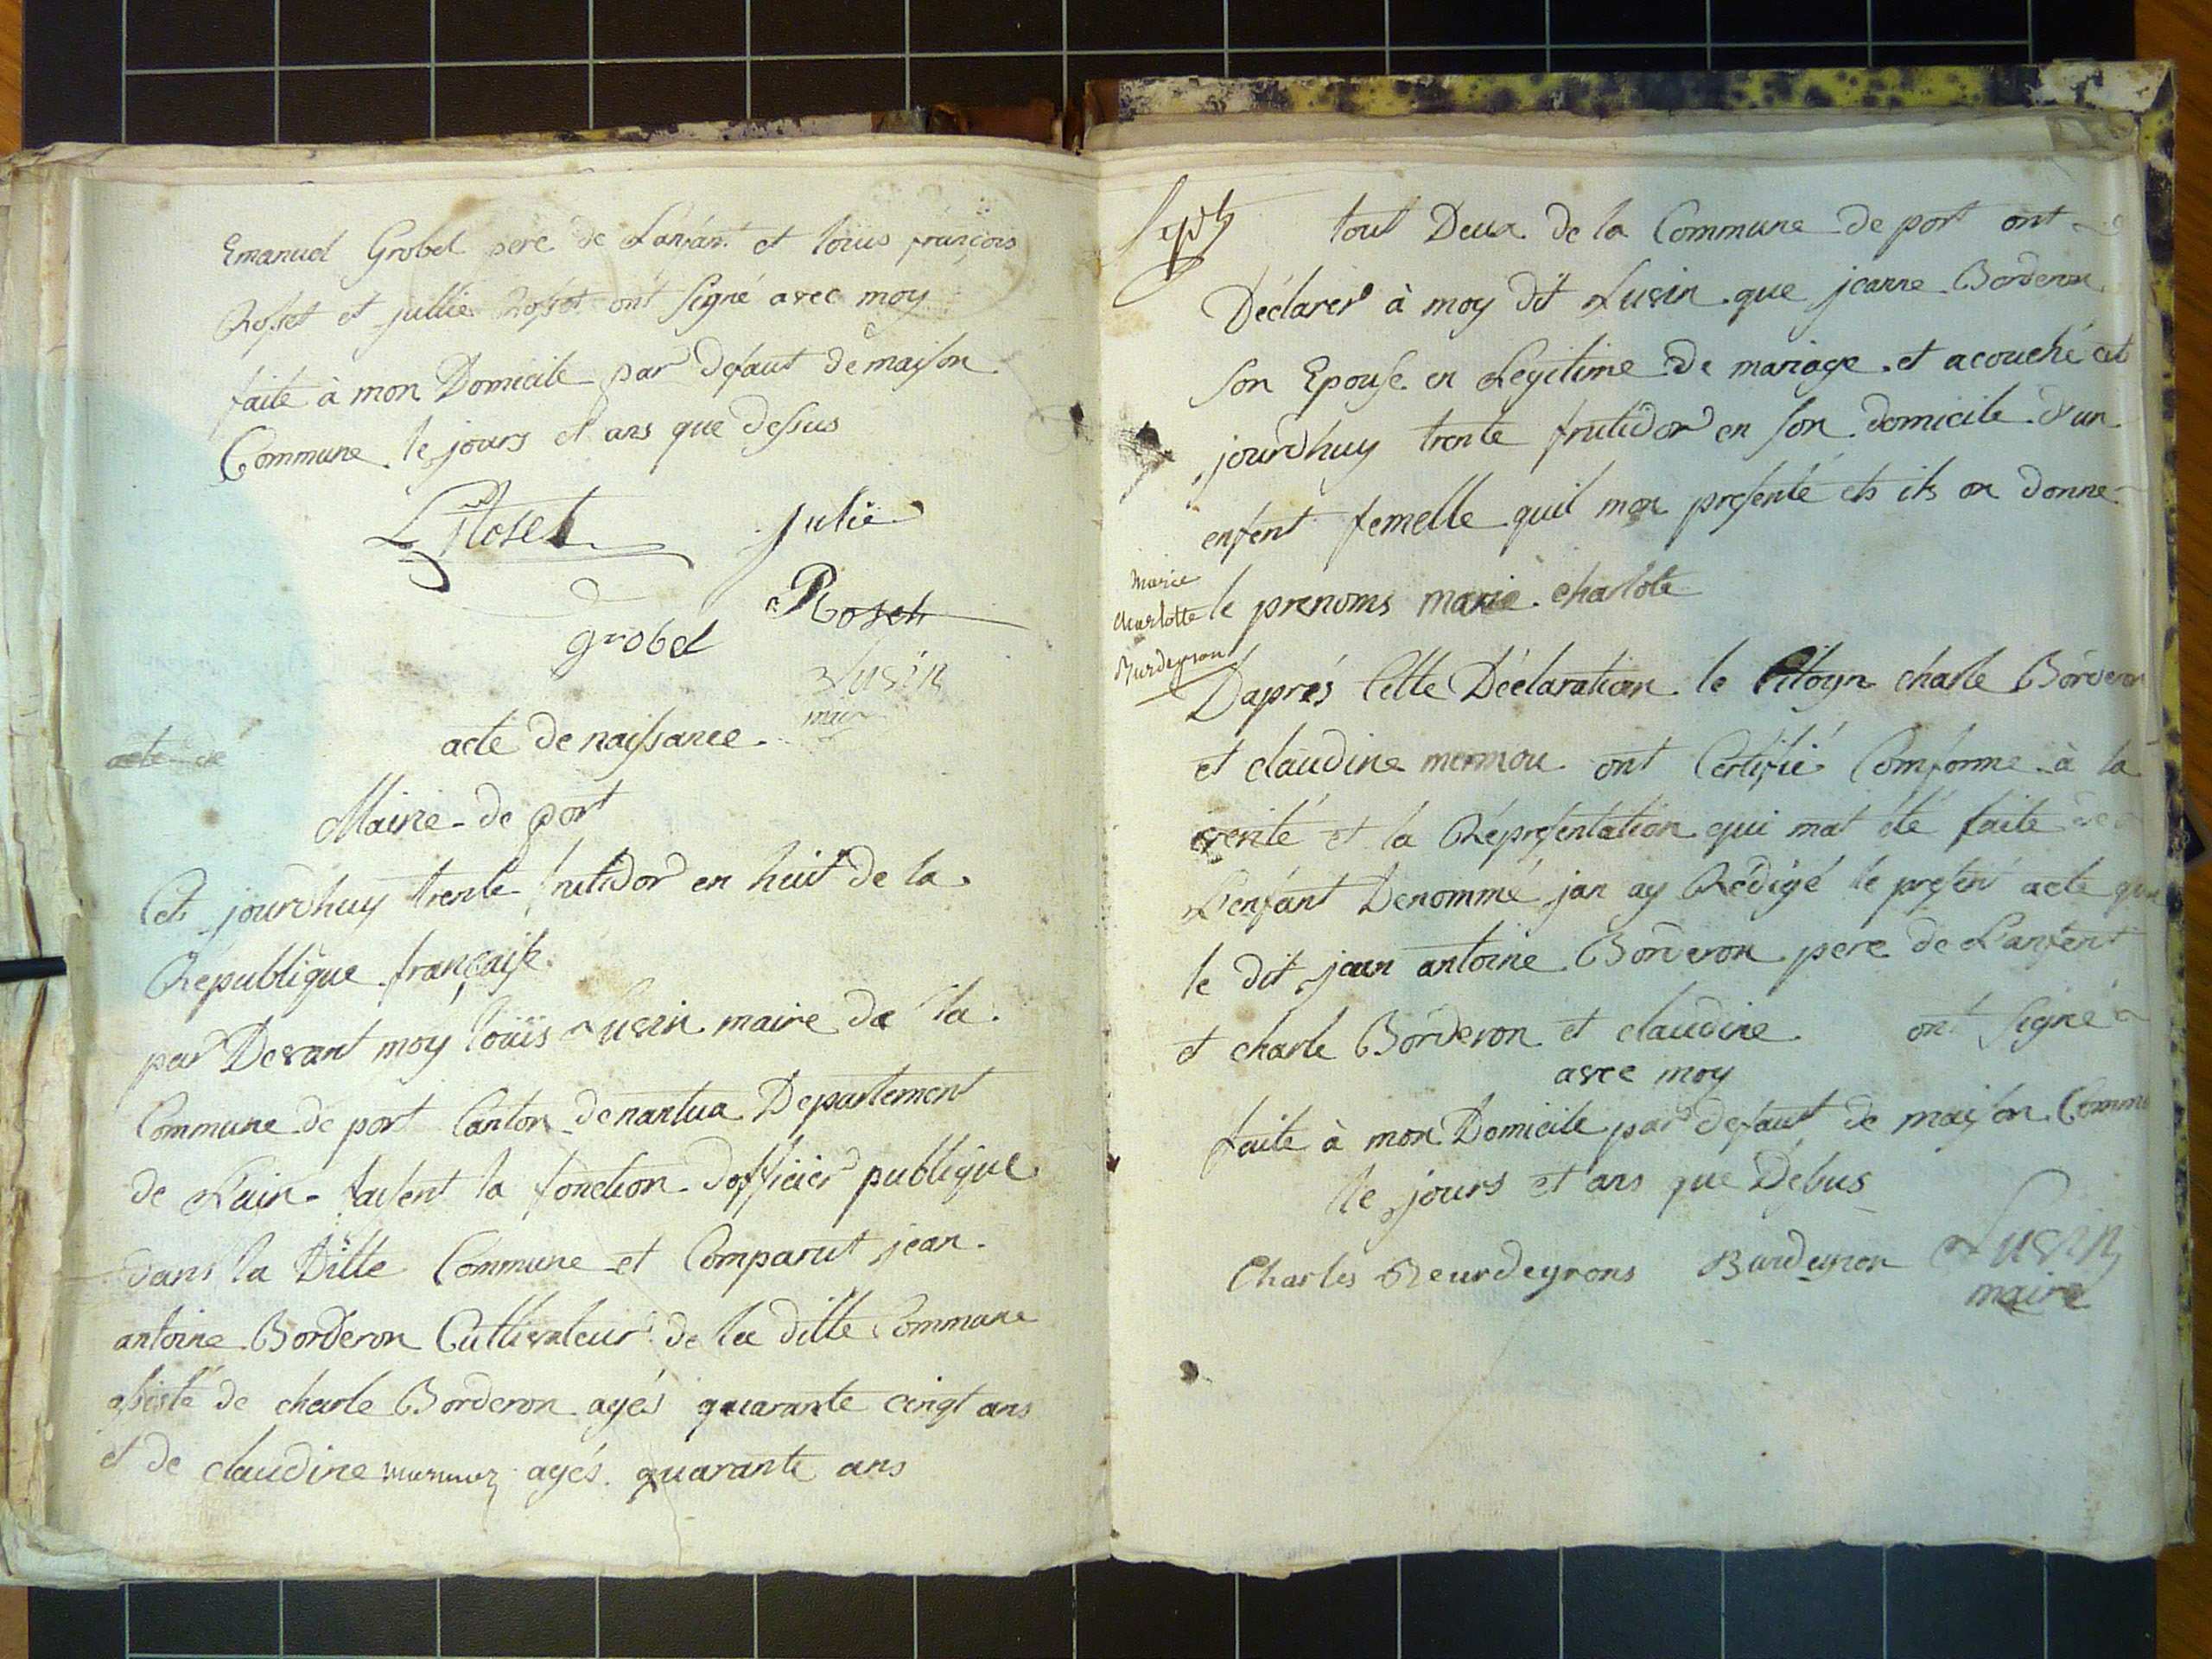 Emanuel Grobel pere de Lanfant et loüis françois
Rosset et jullie Rosset ont signé avec moy
faite à mon Domicile par defaut de maison
Commune le jours et ans que dessus
L Roset Julie
Roset
grobel
Lusin
maire
acte de naissance
acte de
Mairie de port
Cet jourdhuy trente frutidor en huit de la
Republique française
par Devant moy loüis Lusin maire de la
Commune de port Canton de nantua Departement
de Lain faisent la fonction dofficier publique
dans la Ditte Commune et Comparut jean
antoine Borderon Cultivateur de la ditte Commune
assisté de charle Borderon agés quarante cinqt ans
et de claudine murmoz agés quarante ans
sept
tout Deux de la Commune de port ont
Déclarer à moy dit Lusin que jeanne Borderon
son Epouse en Legitime de mariage et acouché cet
jourdhuy trente frutidor en son domicile d'un
enfent femelle quil mon presenté et ils on donne
le prenoms marie charlote
Marie
Charlotte
Burdeyron
Daprés Cette Déclaration le Citoyn charle Borderon
et claudine mermou ont Certifié Comforme à la
verité et la Répresentation qui mat été faite de
L'enfant Denommé jan ay Rédigé le present acte que
le dit jean antoine Borderon pere de Lanfent
et charle Borderon et claudine ont signé
avec moy
faite à mon Domicile par defaut de maison Commu
le jours et ans que Debus
Charles Beurdeyrons Burdeyron Lusin
maire